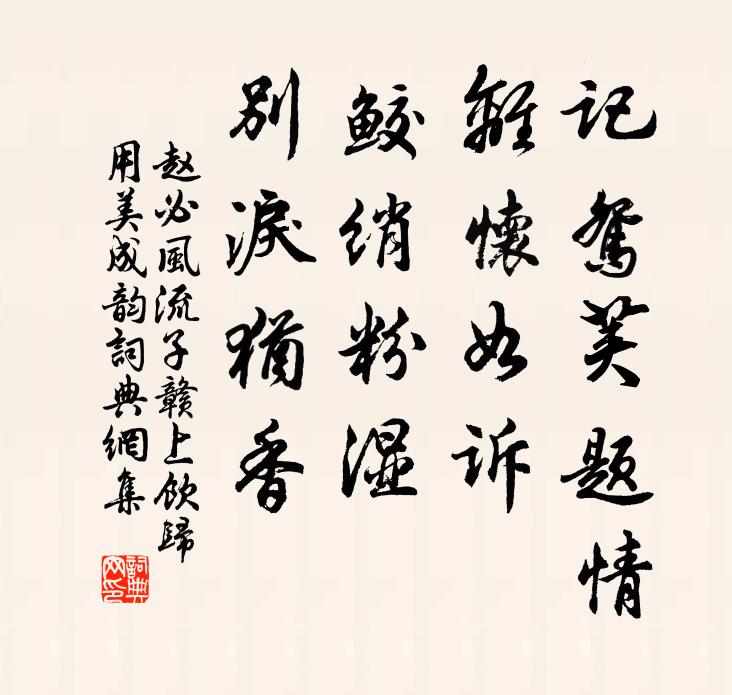 记鸳芙题情
離懷如诉
鲛绡粉湿
别淚猶香
赵必風流子赣上飲歸
用美成韵詞典網集
詞典網印